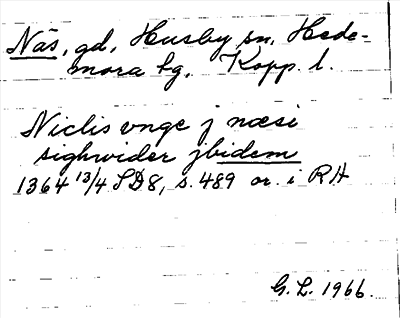 Näs, gd, Husby sn, Hede-
mora hg, Kopp. l.
Niclis vnge j næsi
sighwider jbidem
1364 13/4 SD8, s. 489 or. i RH
G.L. 1966.